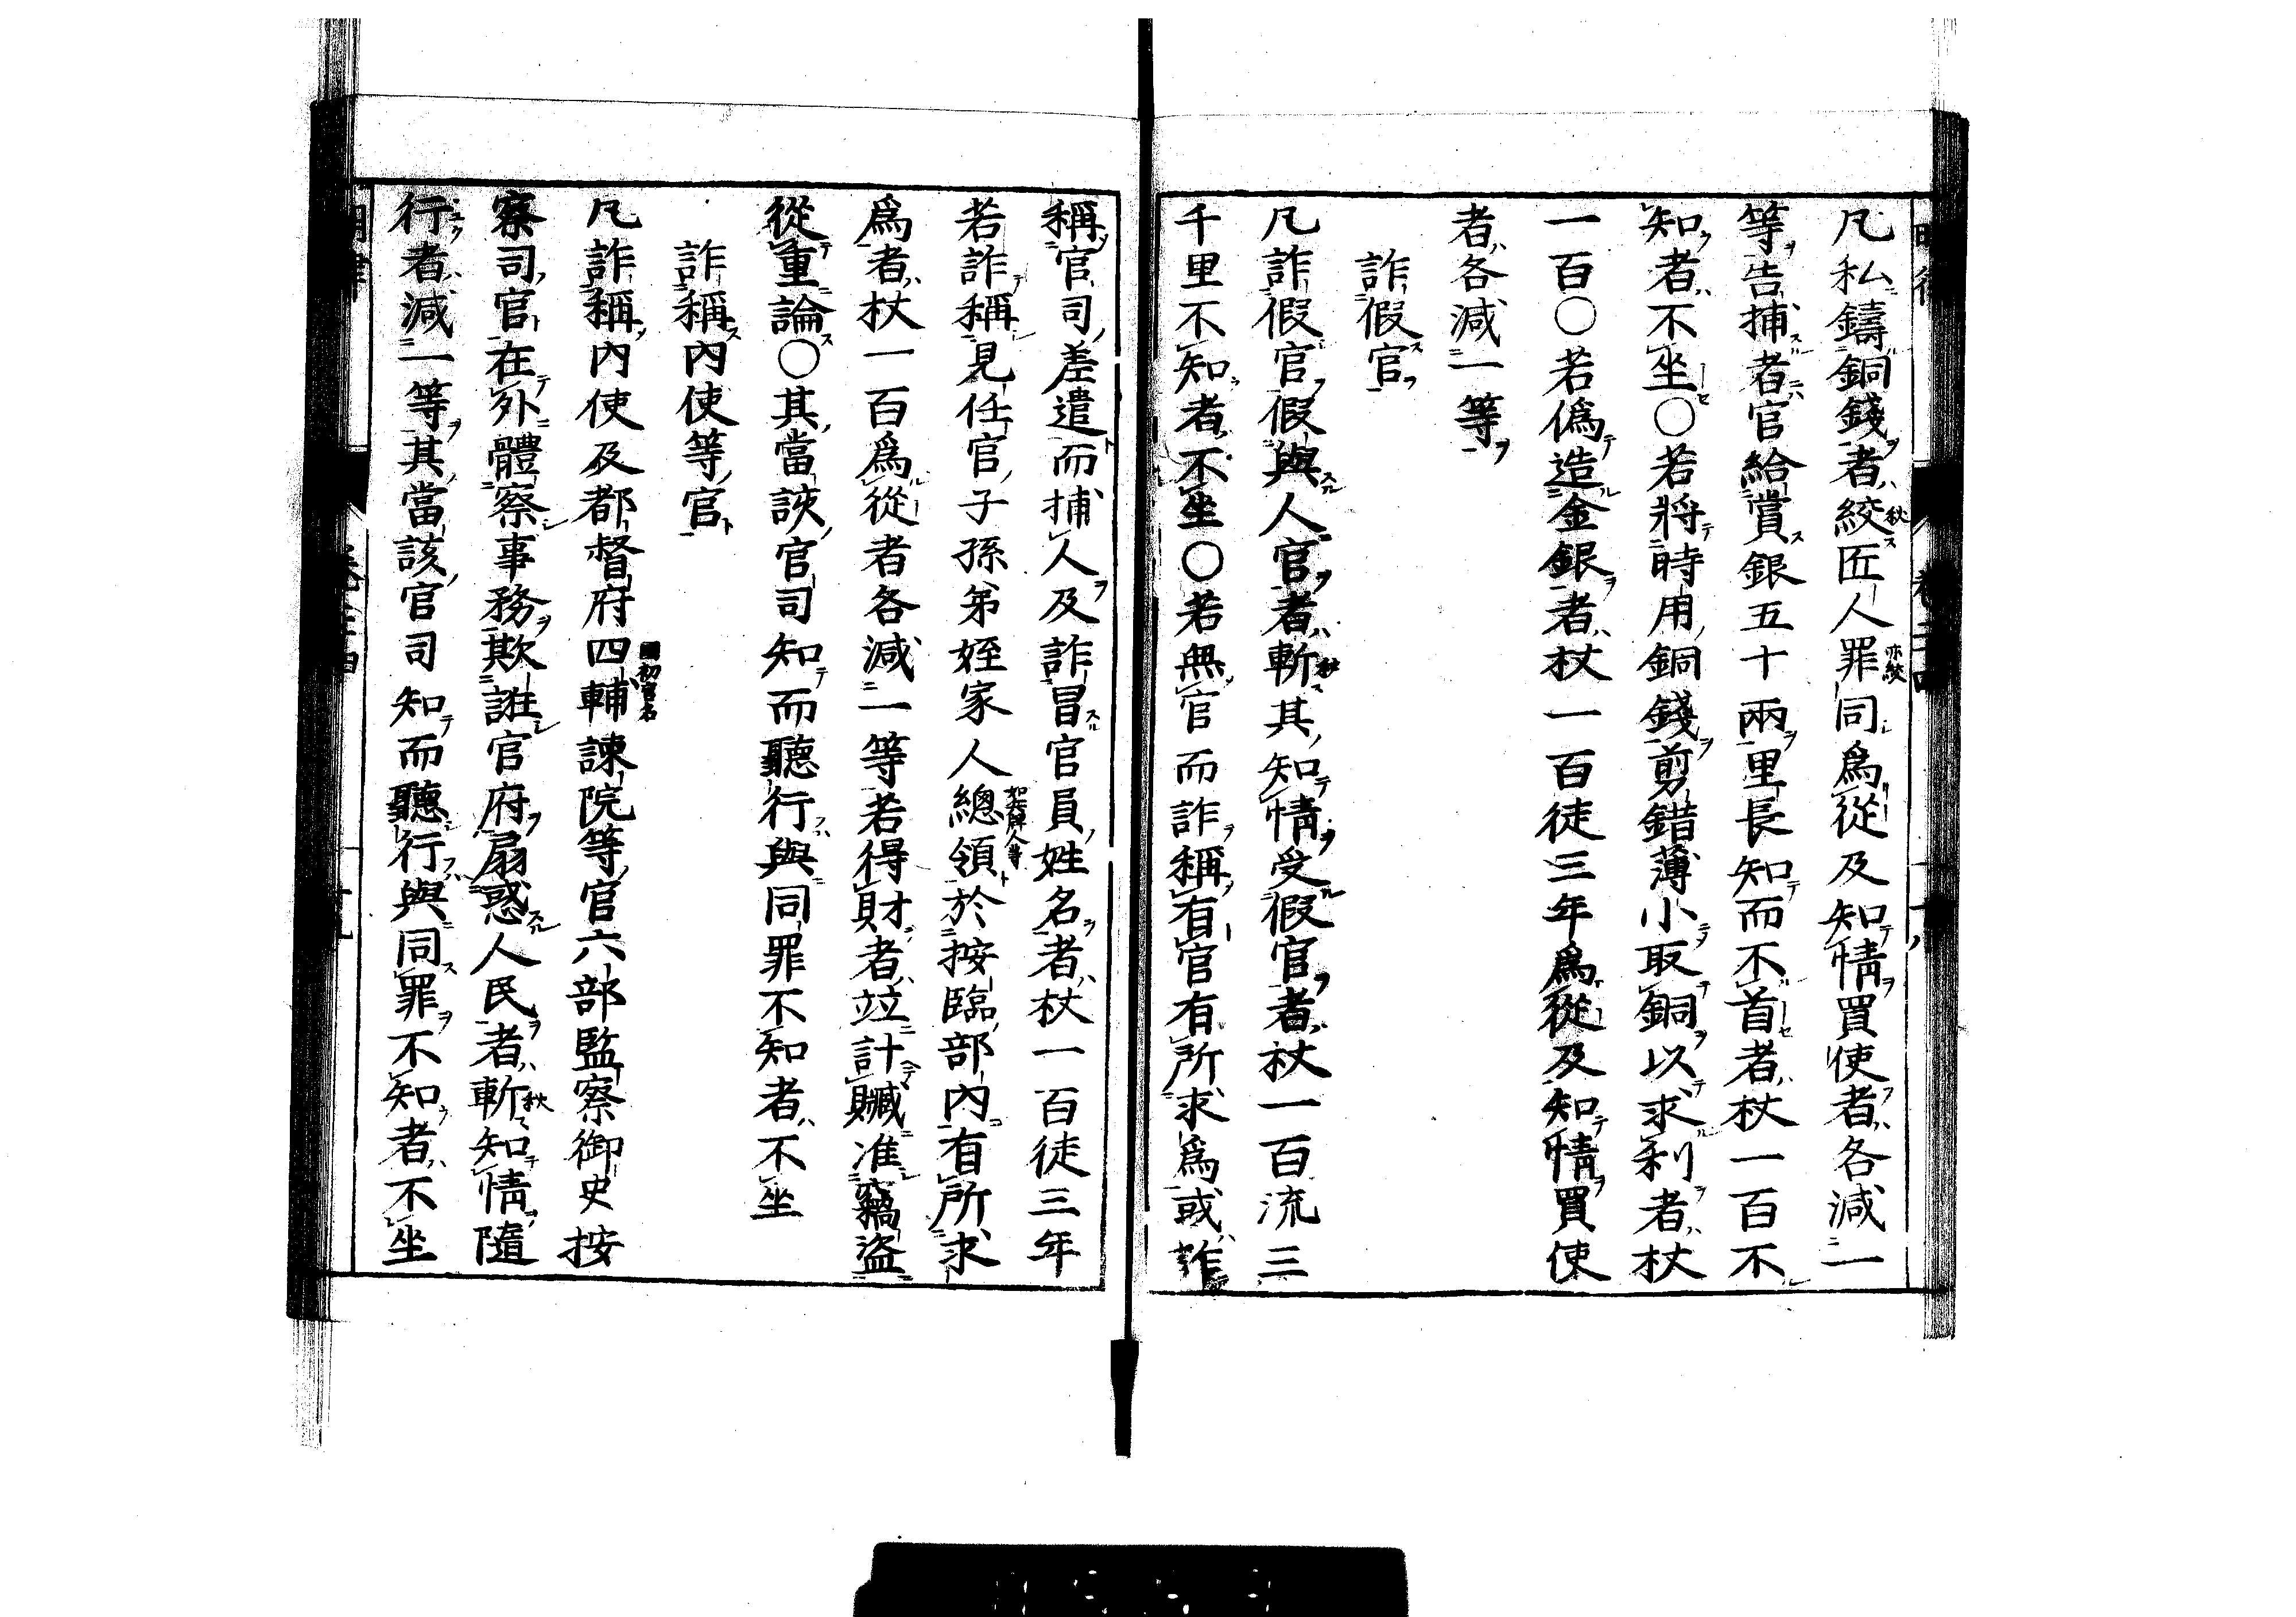 凡私鑄銅錢者絞匠人罪同爲從及知情買使者各減一
秋
亦絞
等告捕者官給賞銀五十兩里長知而不首者杖一百不
知者不坐○若將時用銅錢剪錯薄小取銅以求利者杖
一百○若僞造金銀者杖一百徒三年爲從及知情買使
者各減一等
詐假官
凡詐假官假與人官者斬其知情受假官者杖一百流三
秋
千里不知者不坐○若無官而詐稱有官有所求爲或詐
稱官司差遣而捕人及詐冒官員姓名者杖一百徒三年
若詐稱見任官子孫弟姪家人總領於按臨部內有所求
爲者杖一百爲從者各減一等若得財者竝計贓准竊盜
從重論○其當該官司知而聽行與同罪不知者不坐
詐稱內使等官
凡詐稱內使及都督府四輔諫院等官六部監察御史按
國初官名
察司官在外體察事務欺誑官府扇惑人民者斬知情隨
秋
行者減一等其當該官司知而聽行與同罪不知者不坐